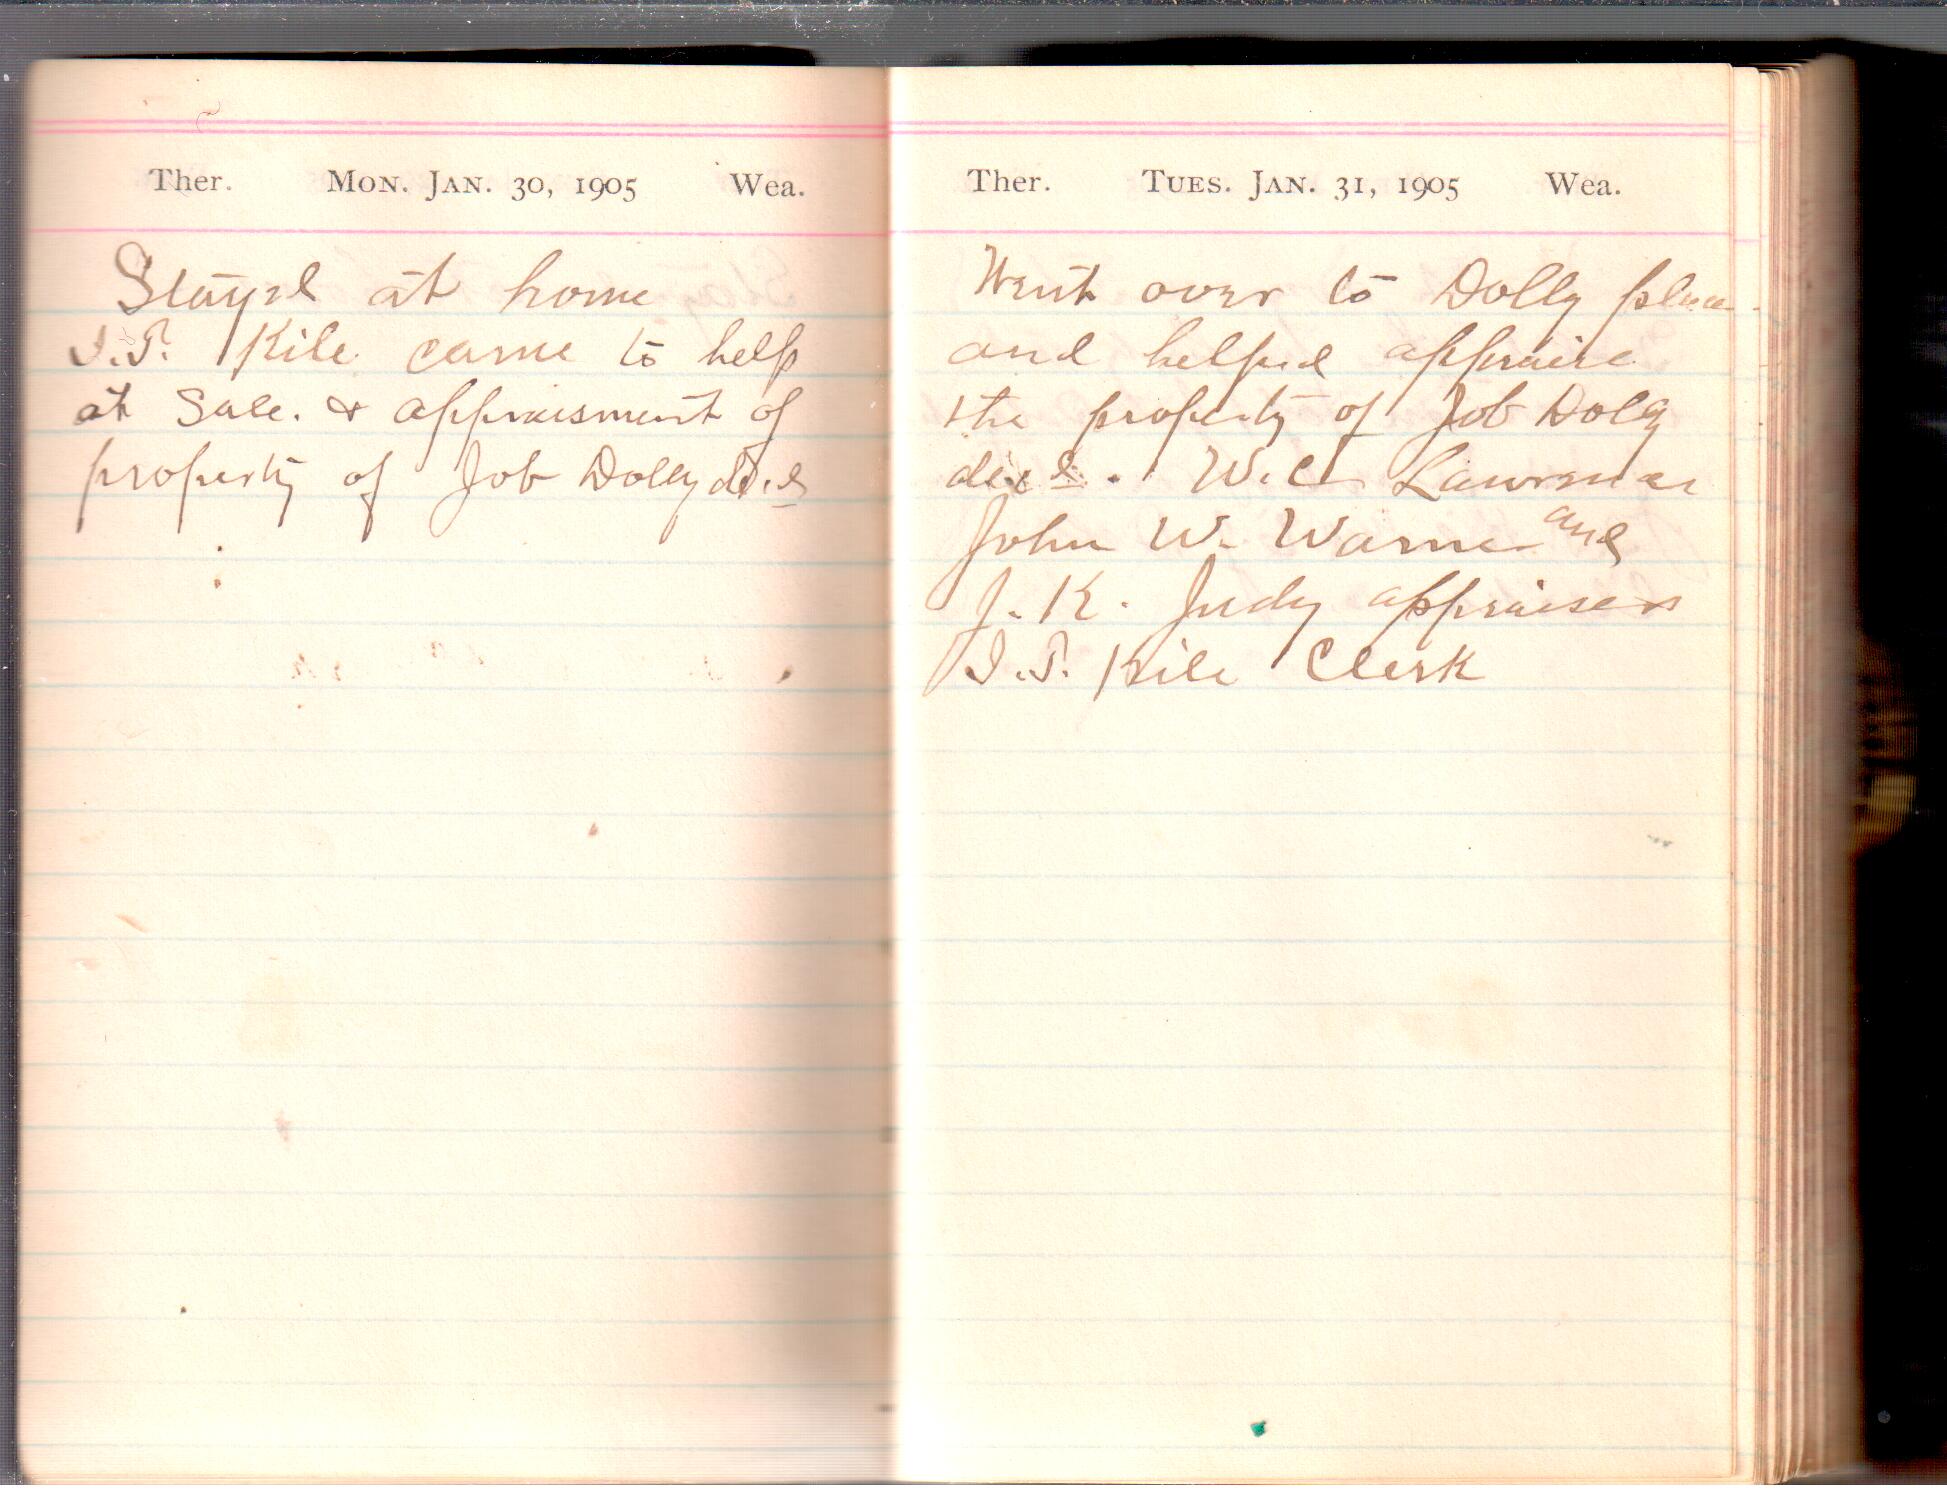 Ther. Mon. Jan. 30, 1905 Wea.
Stayed at home
I.T. Kile came to help
at Sale. & appraisment of
property of Job Dolly dec.d
Ther. Tues. Jan. 31, 1905 Wea.
Went over to Dolly place
and helped appraise
the property of Job Dolly
decd. W.C.
John W. and
J. K. Judy appraisers
I.T. Kile Clerk